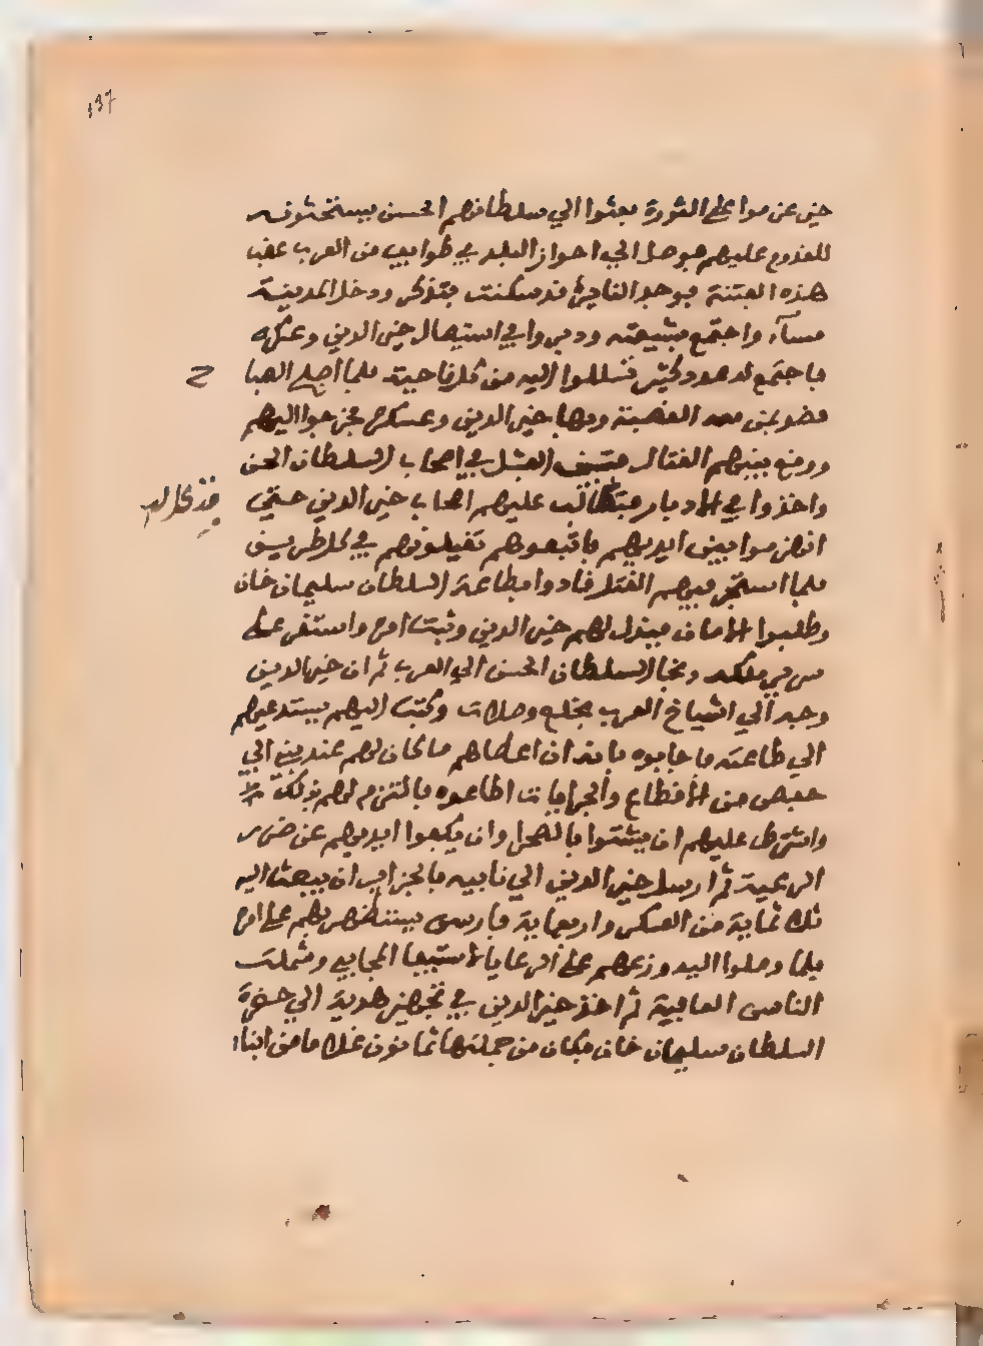 137
حين عزموا على الثورة بعثوا الي سلطانهم الحسن يستحثونه
للقدوم عليهم فوصل الي احواز البلد في طوايف من العرب عقب
هذه الفتنة فوجد الناييرة قد سكنت فتنكر ودخل المدينة
مسآء واجتمع بشيعته ودبروا في استيصال خير الدين وعسكره
فاجتمع له عدد كثير تسللوا اليه من كل ناحية فلما اصبح الصبا
ح
قصد بمن معه القصبة وبها خير الدين وعسكره فخرجوا اليهم
ووقع بينهم القتال فتبين الفشل في اصحاب السلطان الحسن
واخذوا في الادبار فتكالب عليهم اصحاب خير الدين حتي
انهزموا بين ايديهم فاتبعوهم تقيلونهم في كل طريق
فلما استحر فيهم القتل نادوا بطاعة السلطان سليمان خان
وطلبوا الامان فبذله لهم خير الدين وثبت امره واستقر على
سرير ملكه ونجا السلطان الحسن الي العرب ثم ان خير الدين
وجه الي اشياخ العرب بخلع وصلات وكتب اليهم يستدعيهم
الي طاعته فاجابوه بانه ان اعطاهم ما كان لهم عند بني ابي
حفص من الاقطاع والجرايات اطاعوه فالتزم لهم ذلك
واشترط عليهم ان يشتوا بالصحرا وان يكفوا ايديهم عن ضرر
الرعية ثم ارسل خير الدين الي نايبه بالجزاير ان يبعث اليه
ثلاثماية من العسكر واربعماية فارس يستظهر بهم على امره
فلما وصلوا اليه وزعهم على الرعايا لاستيفا المجابي وشملت
الناس العافية ثم اخذ خير الدين في تجهيز هدية الي حضرة
السلطان سليمان خان فكان من جملتها ثمانون غلاما من ابنا